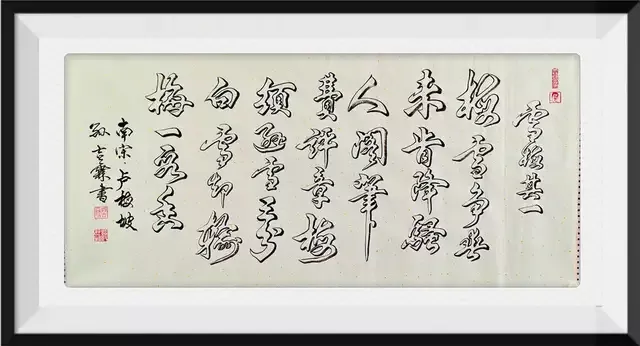 雪梅其一
梅雪争春
未肯降骚
人阁筆
費評章梅
须逊雪三分
白雪却输
梅一段香
南宋·卢梅坡
孙吉霖書